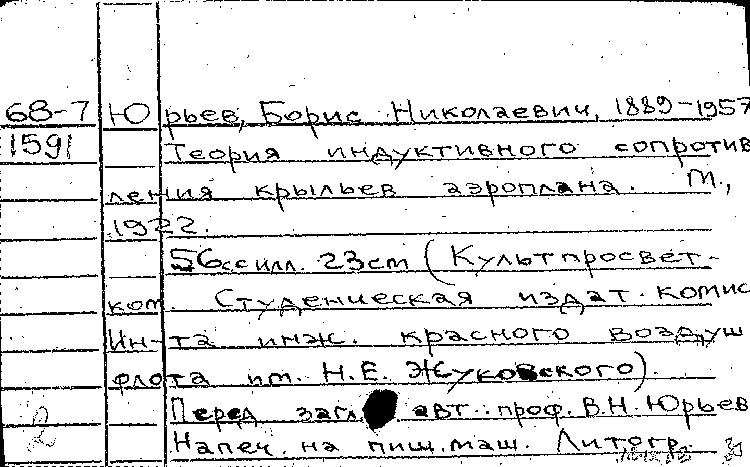 68-7 Юрьев, Борис Николаевич, 1889-1957
1591 Теория индуктивного сопротив
ления крыльев аэроплана. М.,
1922.
56 с с илл. 23 cm (Культпросвет-
ком. Студенческая издат. комис
Ин-та инж. красного воздуш
флота им. Н.Е. Жуковского).
Перед загл. авт.: проф. В.Н. Юрьев
2 Напеч. на пиш. маш. Литогр.